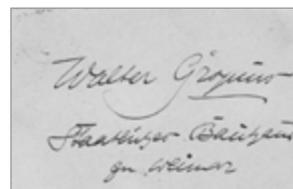 Walter Gropius
Staatliches Bauhaus
zu Weimar